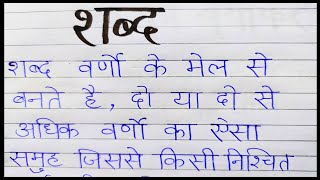 शब्द
शब्द वर्णो के मेल से
बनते है, दो या दो से
अधिक वर्णो का ऐसा
समुह जिससे किसी निश्चित